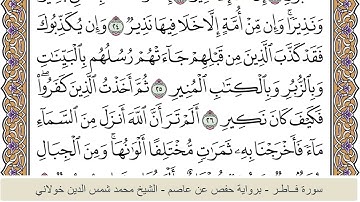 وَنَذِيرًا ۚ وَإِن مِّنْ أُمَّةٍ إِلَّا خَلَا فِيهَا نَذِيرٌ ۝٢٤ وَإِن يُكَذِّبُوكَ
فَقَدْ كَذَّبَ الَّذِينَ مِن قَبْلِهِمْ جَاءَتْهُمْ رُسُلُهُم بِالْبَيِّنَاتِ
وَبِالزُّبُرِ وَبِالْكِتَابِ الْمُنِيرِ ۝٢٥ ثُمَّ أَخَذْتُ الَّذِينَ كَفَرُوا ۖ
فَكَيْفَ كَانَ نَكِيرِ ۝٢٦ أَلَمْ تَرَ أَنَّ اللَّهَ أَنزَلَ مِنَ السَّمَاءِ
مَاءً فَأَخْرَجْنَا بِهِ ثَمَرَاتٍ مُّخْتَلِفًا أَلْوَانُهَا ۚ وَمِنَ الْجِبَالِ
سورة فاطر - برواية حفص عن عاصم - الشيخ محمد شمس الدين خولاني